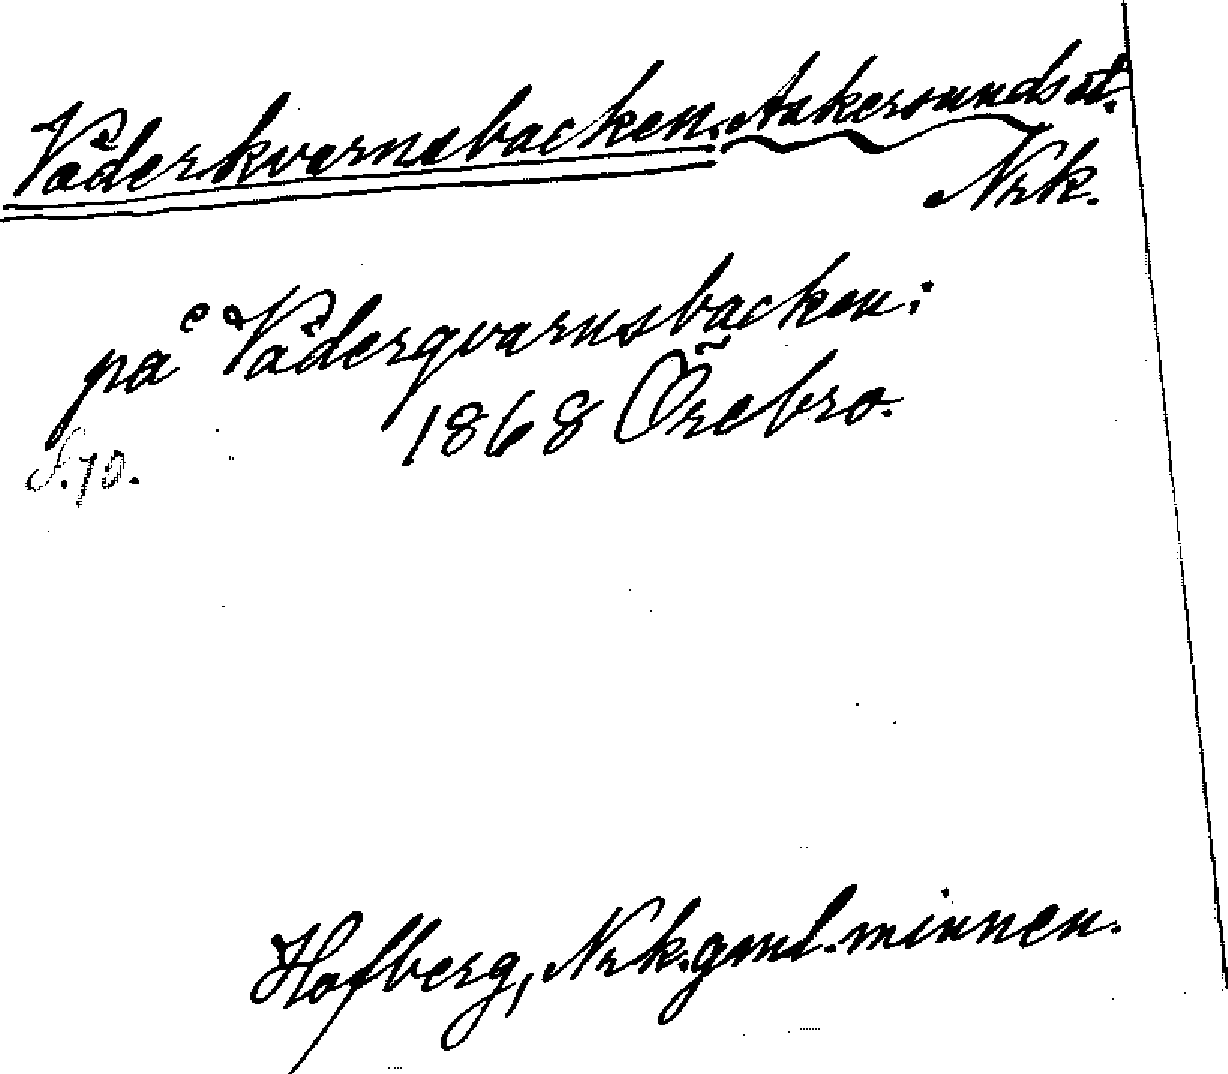 Väderkvarnsbacken. Askersunds st.
Nrk.
på Vädergvarnsbacken:
1868 Örebro.
S. 70.
Hofberg, Nrk. gml. minnen.